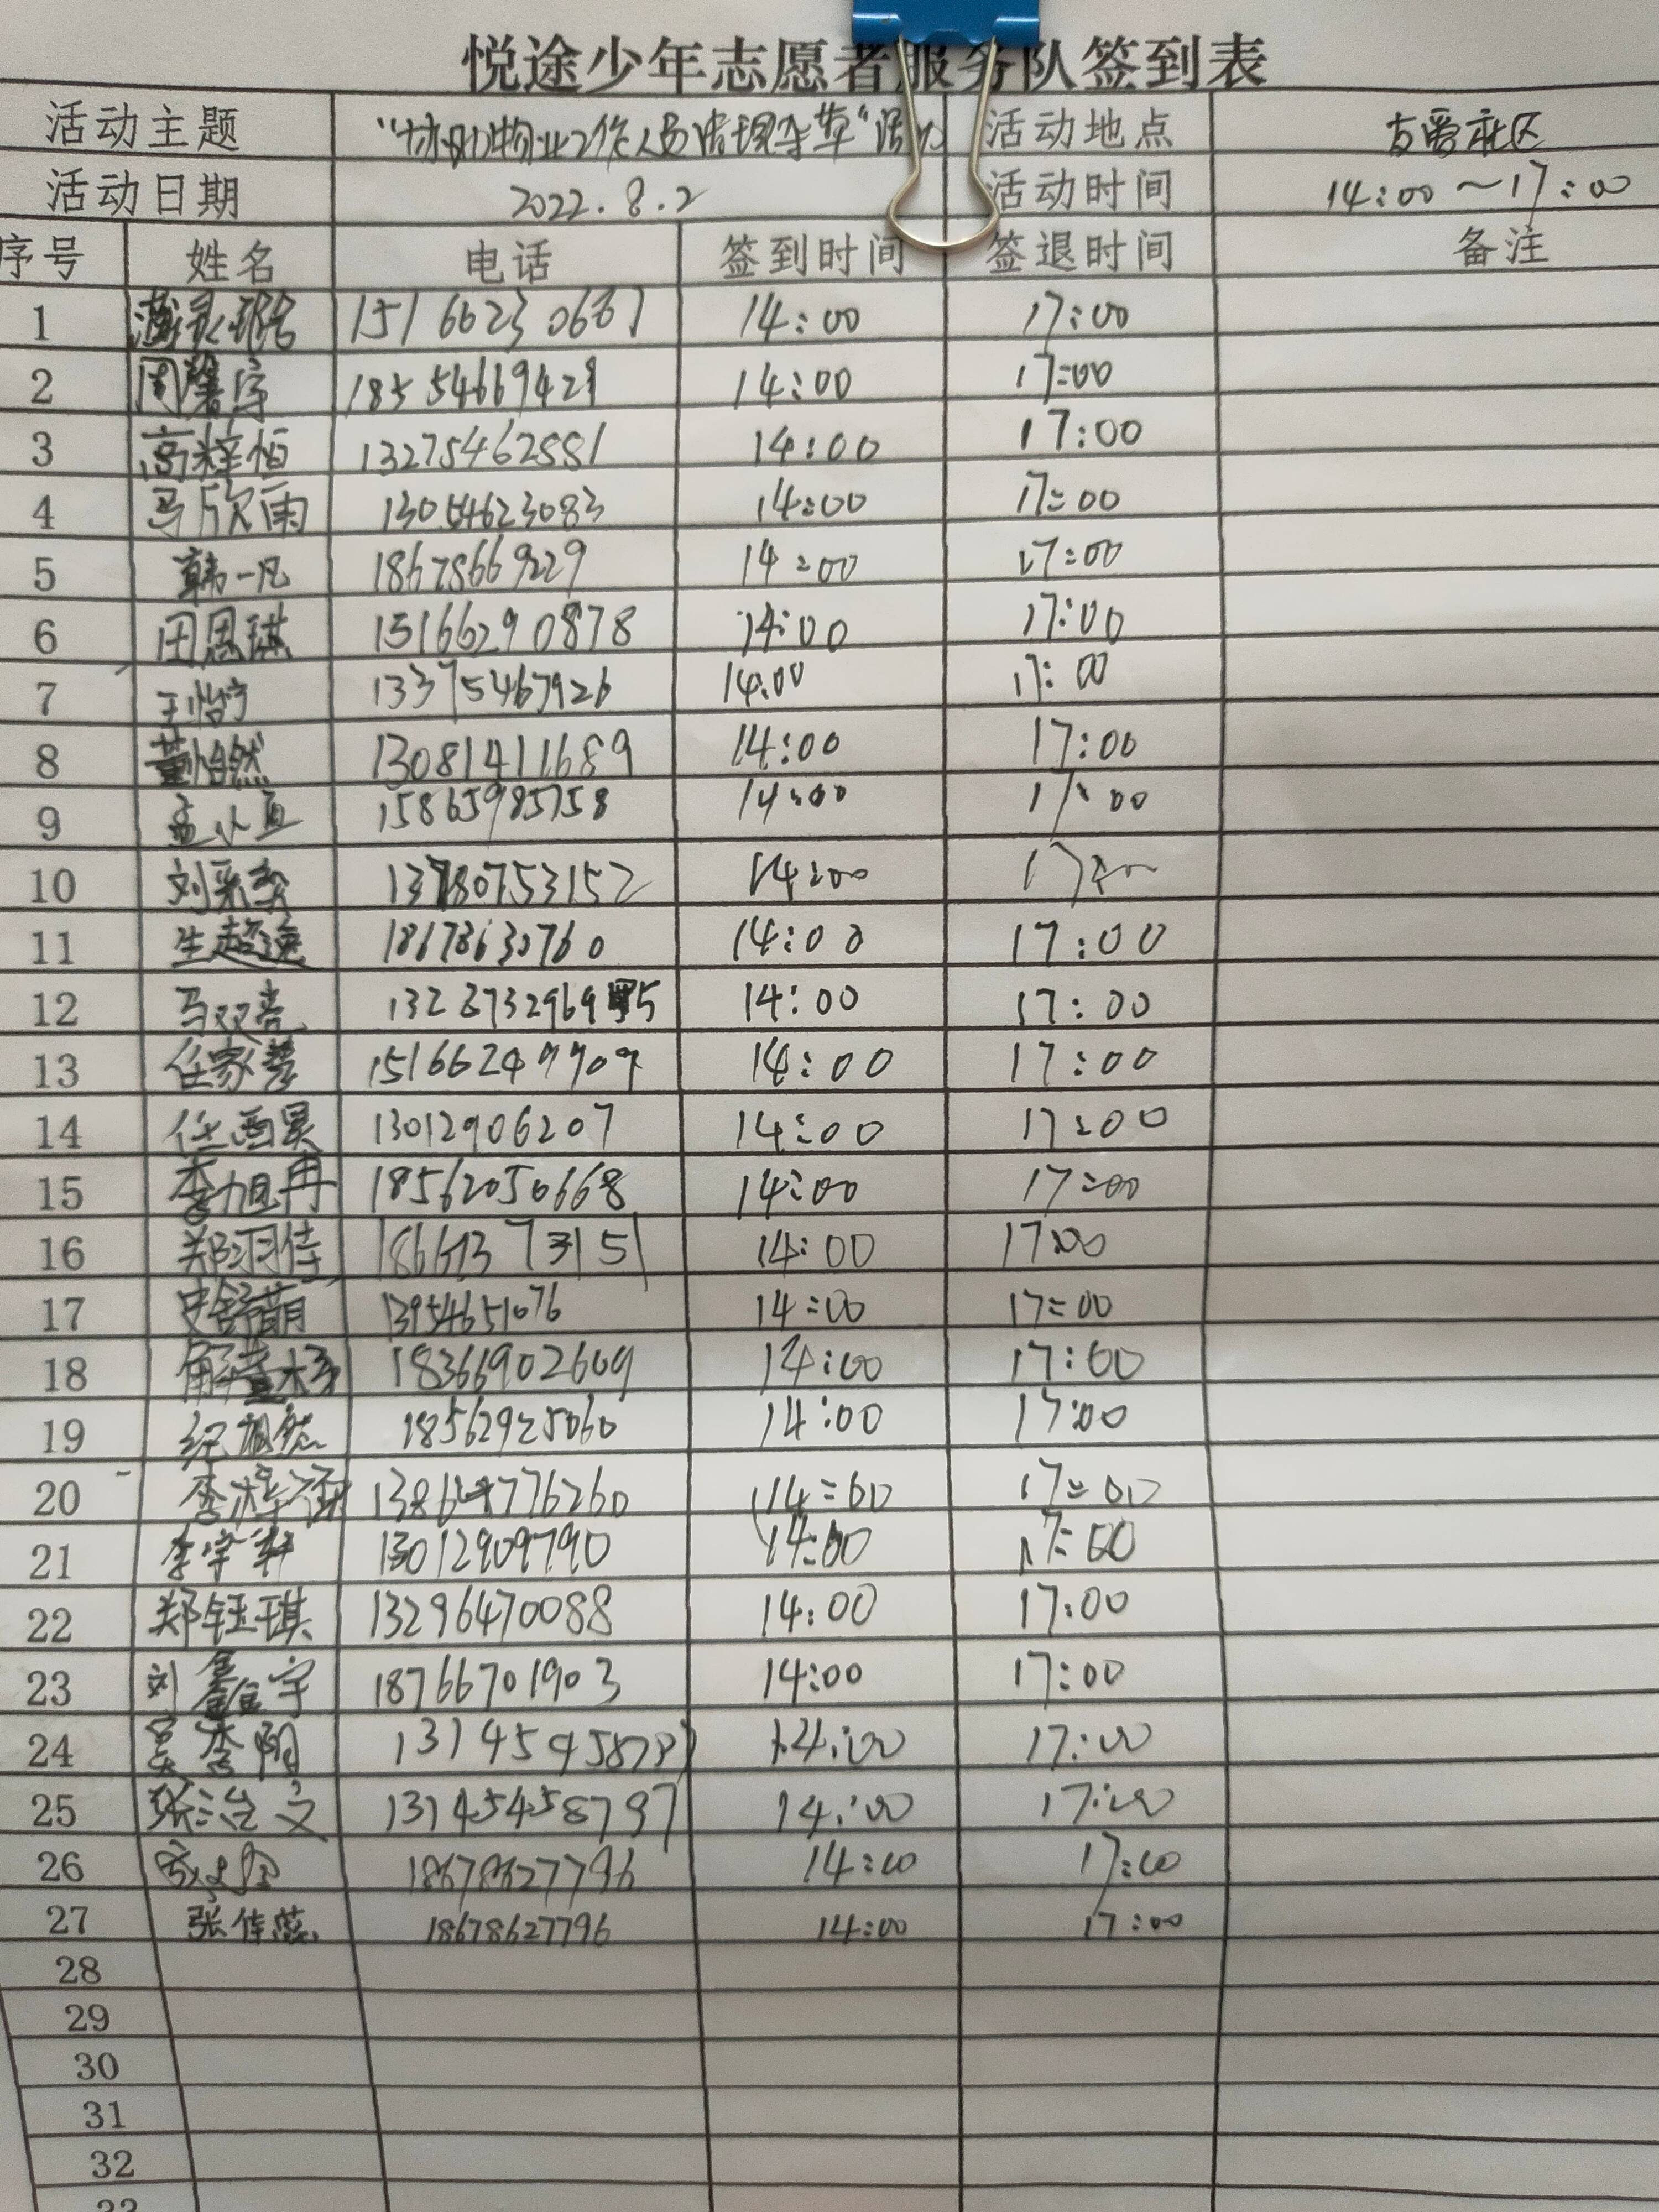 悦途少年志愿者服务队签到表
活动主题 "协助物业工作人员清理杂草"活动 活动地点 友爱社区
活动日期 2022.8.2 活动时间 14:00~17:00
序号 姓名 电话 签到时间 签退时间 备注
1 14:00 17:00
2 周馨宇 18554669421 14:00 17:00
3 高梓恒 13275462881 14:00 17:00
4 马欣雨 13054623083 14:00 17:00
5 韩一凡 18678669229 14:00 17:00
6 田恩琪 15166290878 14:00 17:00
7 王怡宁 13375467926 14:00 17:00
8 董怡然 13081411689 14:00 17:00
9 15865985758 14:00 17:00
10 13780753152 14:00 17:00
11 生超逸 18678630760 14:00 17:00
12 马双亮 14:00 17:00
13 14:00 17:00
14 任西昊 13012906207 14:00 17:00
15 李旭冉 18562050668 14:00 17:00
16 郑羽佳 14:00 17:00
17 史舒萌 13954651076 14:00 17:00
18 18366902609 14:00 17:00
19 18562925060 14:00 17:00
20 14:00 17:00
21 李宇轩 13012909790 14:00 17:00
22 郑钰琪 13296470088 14:00 17:00
23 刘鑫宇 18766701903 14:00 17:00
24 14:00 17:00
25 张治文 13145458797 14:00 17:00
26 18678627796 14:00 17:00
27 18678627796 14:00 17:00
28
29
30
31
32
33